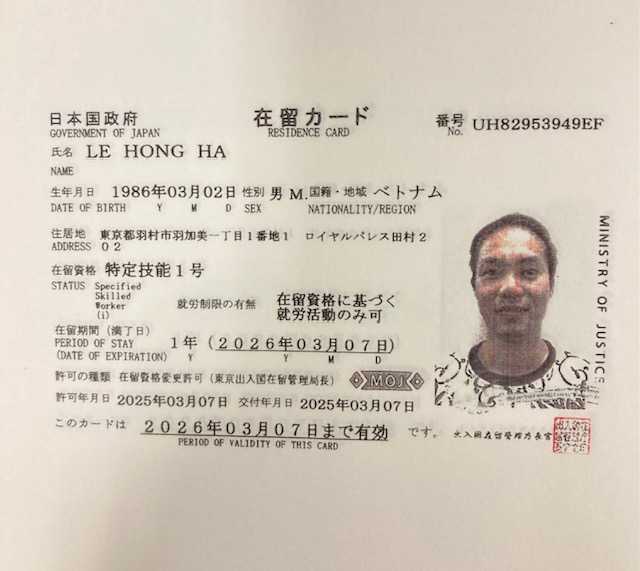 日本国政府 在留カード 番号 UH82953949EF
GOVERNMENT OF JAPAN RESIDENCE CARD No.
氏名 LE HONG HA
NAME
生年月日 1986年03月02日 性別 男 M. 国籍・地域 ベトナム
DATE OF BIRTH Y M D SEX NATIONALITY/REGION
住居地 東京都羽村市羽加美一丁目1番地1 ロイヤルパレス田村2
ADDRESS 02
在留資格 特定技能1号
STATUS Specified
Skilled
Worker
(i)
就労制限の有無 在留資格に基づく
就労活動のみ可
在留期間(満了日)
PERIOD OF STAY 1年(2026年03月07日)
(DATE OF EXPIRATION) Y Y M D
許可の種類 在留資格変更許可(東京出入国在留管理局長) MOJ
許可年月日 2025年03月07日 交付年月日 2025年03月07日
このカードは 2026年03月07日まで有効 です。
PERIOD OF VALIDITY OF THIS CARD
出入国在留管理庁長官
MINISTRY OF JUSTICE